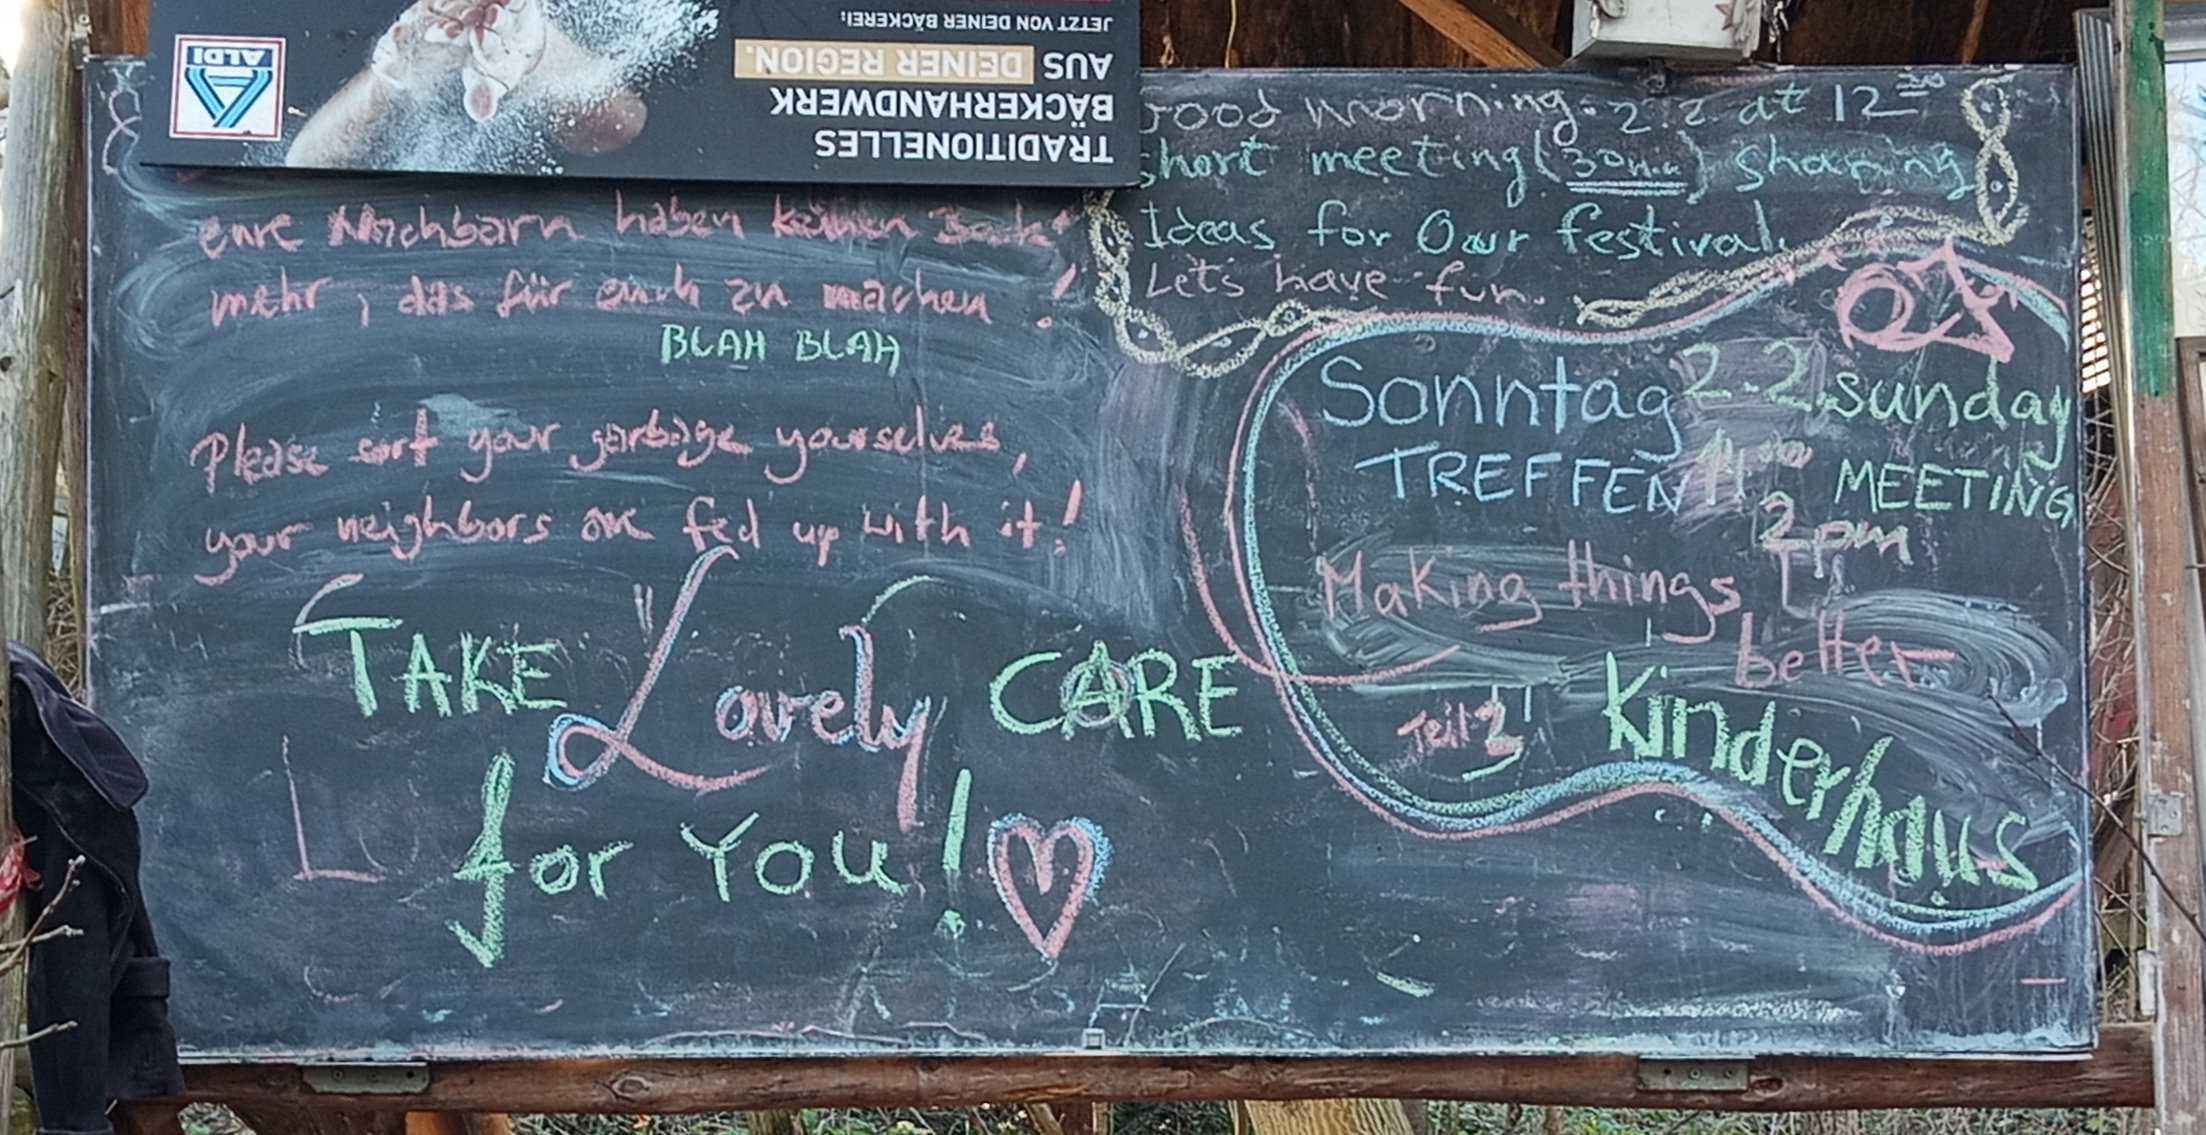 ALDI
TRADITIONELLES
BÄCKERHANDWERK
AUS DEINER REGION.
JETZT VON DEINER BÄCKEREI:
eure Nachbarn haben keinen Bock
mehr, das für euch zu machen!
BLAH BLAH
Please sort your garbage yourselves,
your neighbors are fed up with it!
TAKE Lovely CARE
for You!
Good morning. 2.2. at 12
short meeting (30min) sharing
Ideas for Our festival.
Lets have fun.
Sonntag 2.2. sunday
TREFFEN MEETING
2pm
Making things
better
Teil 3
Kinderhaus